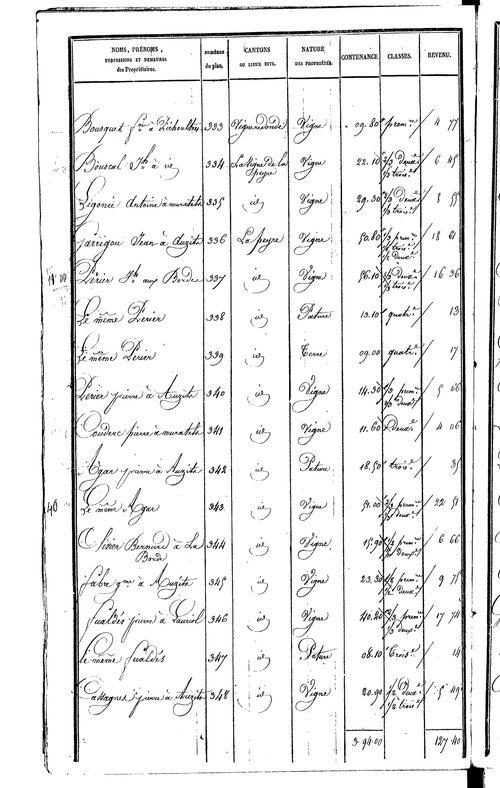 NOMS, PRÉNOMS, PROFESSIONS ET DEMEURES des Propriétaires. | NUMÉROS du plan. | CANTONS OU LIEUX DITS. | NATURE DES PROPRIÉTÉS. | CONTENANCE | CLASSES. | REVENU.
Bousquet à | 333 | Vigne | 09.80 | prem.re | 4 77
Bouscal à id | 334 | La Vigne de la peyre | Vigne | 22.10 | 2/3 deux.e 1/3 trois.e | 6 45
Ligonie Antoine à muratels | 335 | id | Vigne | 29.30 | 2/3 deux.e 1/3 trois.e | 8 55
Garrigou Jean à Auzits | 336 | La peyre | Vigne | 50.80 | prem.re trois.e 1/2 deux.e | 18 61
Périer aux Bordes | 337 | id | Vigne | 56.10 | deux.e 1/3 trois.e | 16 36
Le même Périer | 338 | id | Pature | 13.10 | quatr.e | 13
Le même Périer | 339 | id | Terre | 09.00 | quatr.e | 17
Périer pierre à Auzits | 340 | id | Vigne | 14.30 | 1/3 prem.re 2/3 deux.e | 5 66
Couderc pierre à muratels | 341 | id | Vigne | 11.60 | Deux.e | 4 06
Agar pierre à Auzits | 342 | id | Pature | 18.50 | trois.e | 35
46
Le même Agar | 343 | id | Vigne | 51.00 | 2/3 prem.re 1/3 deux.e | 22 51
Olivier Bernard à La Borde | 344 | id | Vigne | 15.90 | prem.re deux.e | 6 66
fabre à Auzits | 345 | id | Vigne | 23.30 | 1/2 prem.re 1/2 deux.e | 9 75
fualdés pierre à Lauriol | 346 | id | Vigne | 40.20 | 2/3 prem.re 1/3 deux.e | 17 74
le même fualdés | 347 | id | Pature | 06.10 | Trois.e | 14
Cassagnes pierre à Auzits | 348 | id | Vigne | 20.90 | 1/2 Deux.e 1/2 trois.e | 5 49
3.94.00 | 127.40